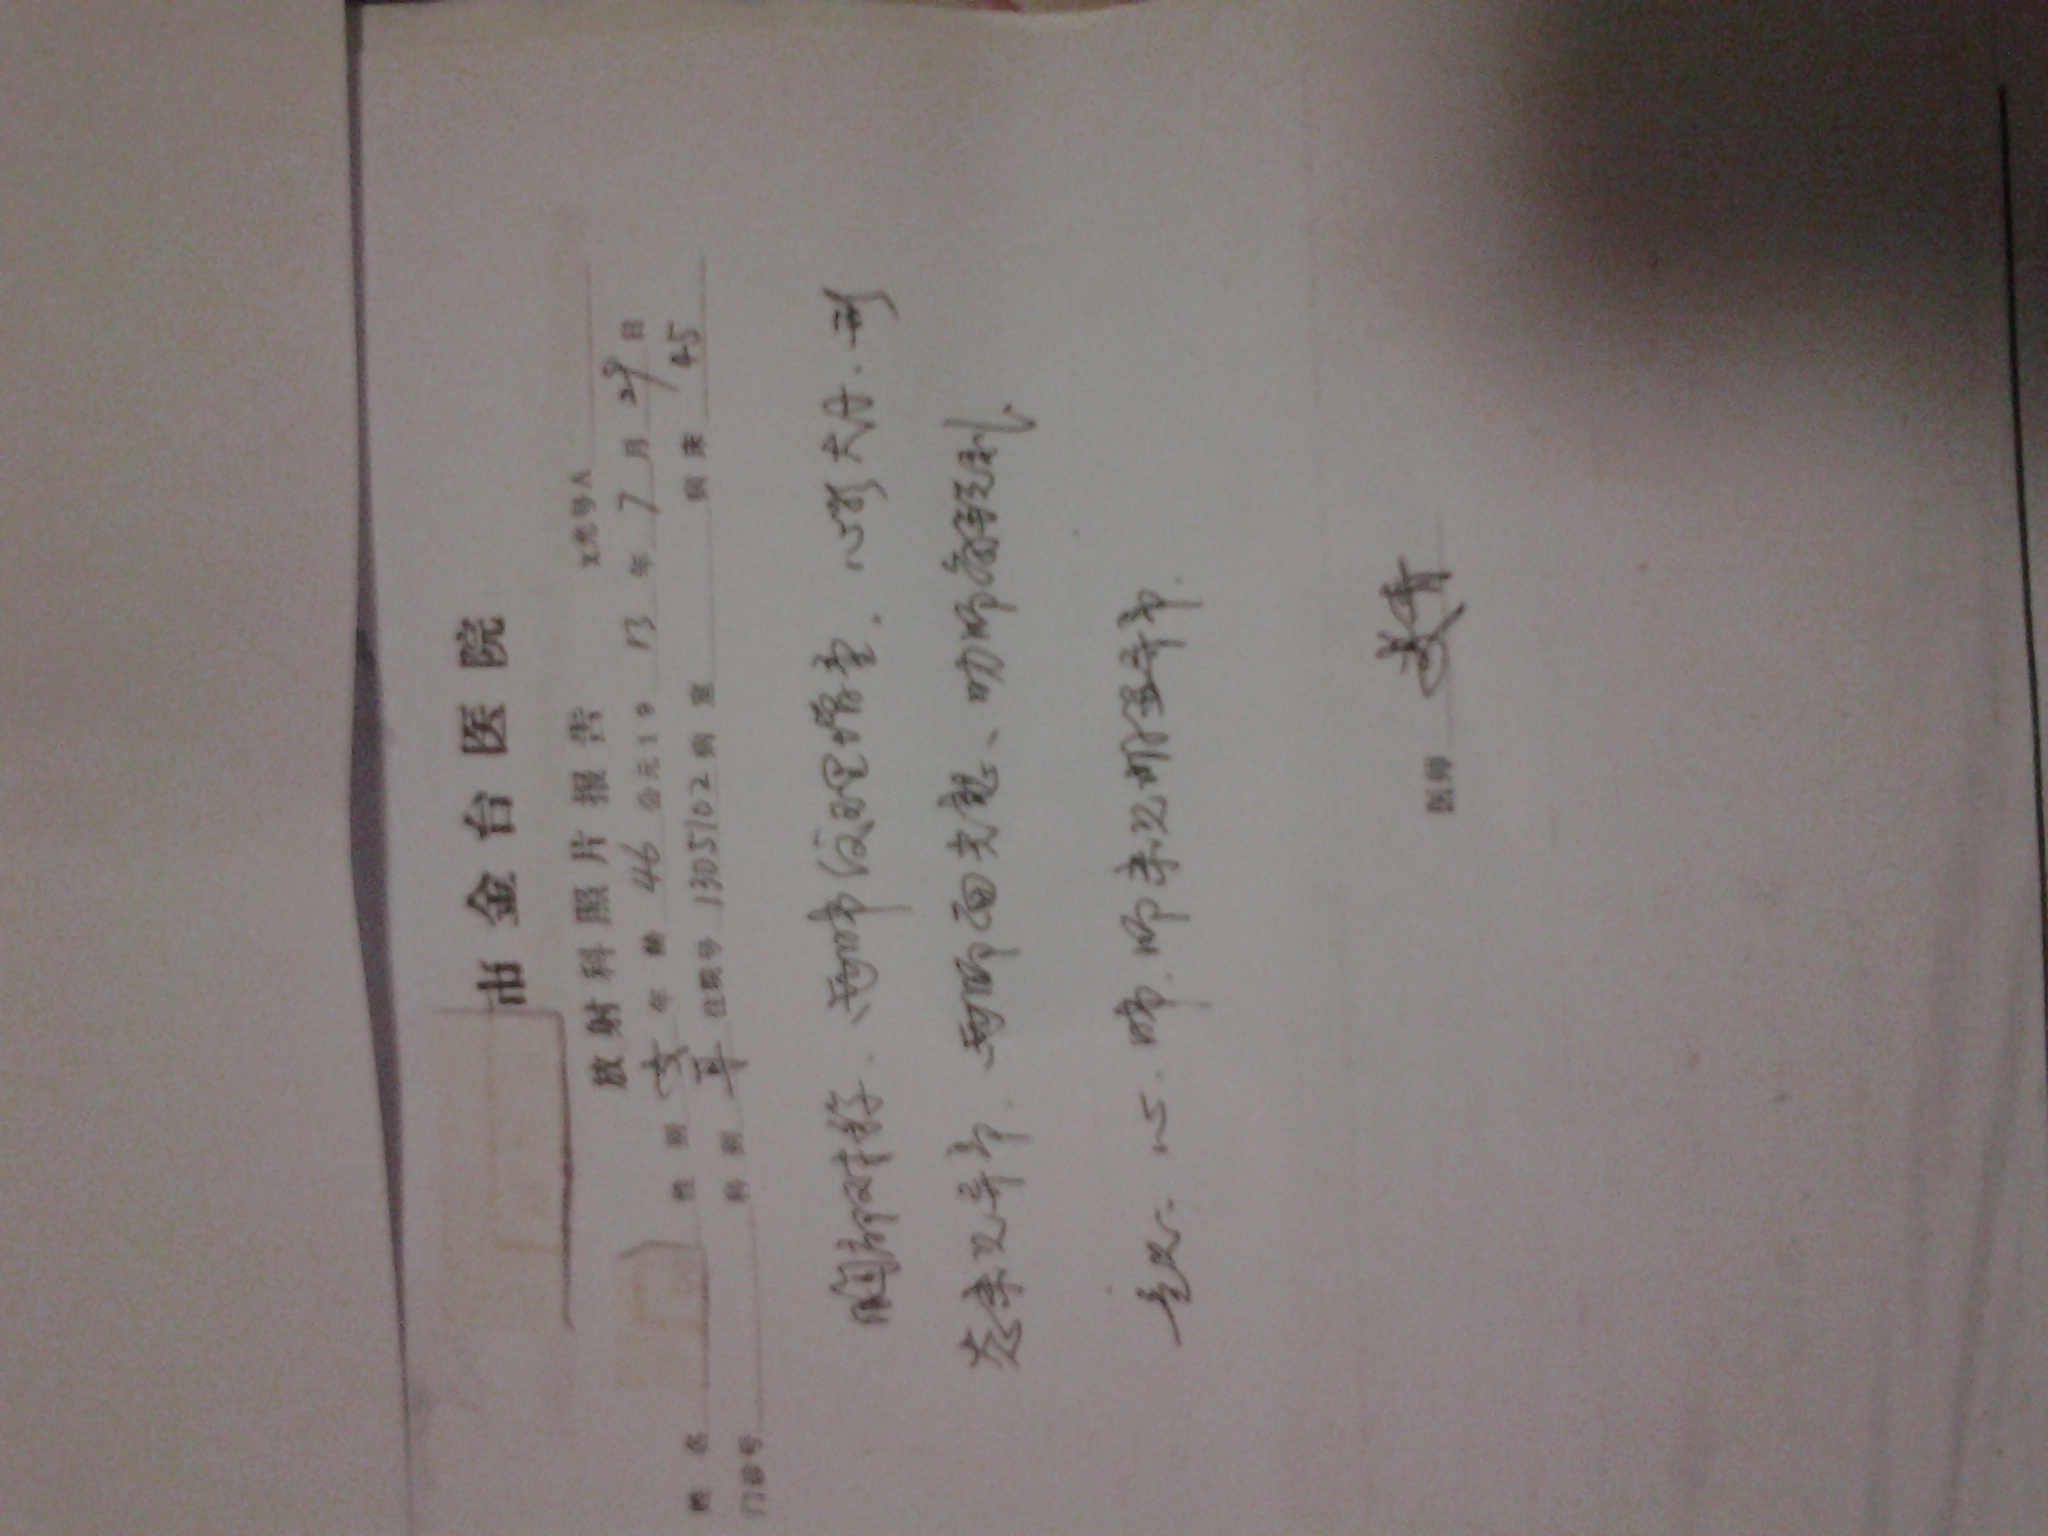 市金台医院
放射科照片报告
X光号A
姓名 性别 女 年龄 46 公元19 13 年 7 月 29 日
门诊号 科别 耳 住院号 1305102 病室 病床 45
胸部对称、两肺纹理增重，心影大小、形
态未见异常、两膈面光整、肋膈角锐利。
意见：心、肺、膈未见明显异常。
医师